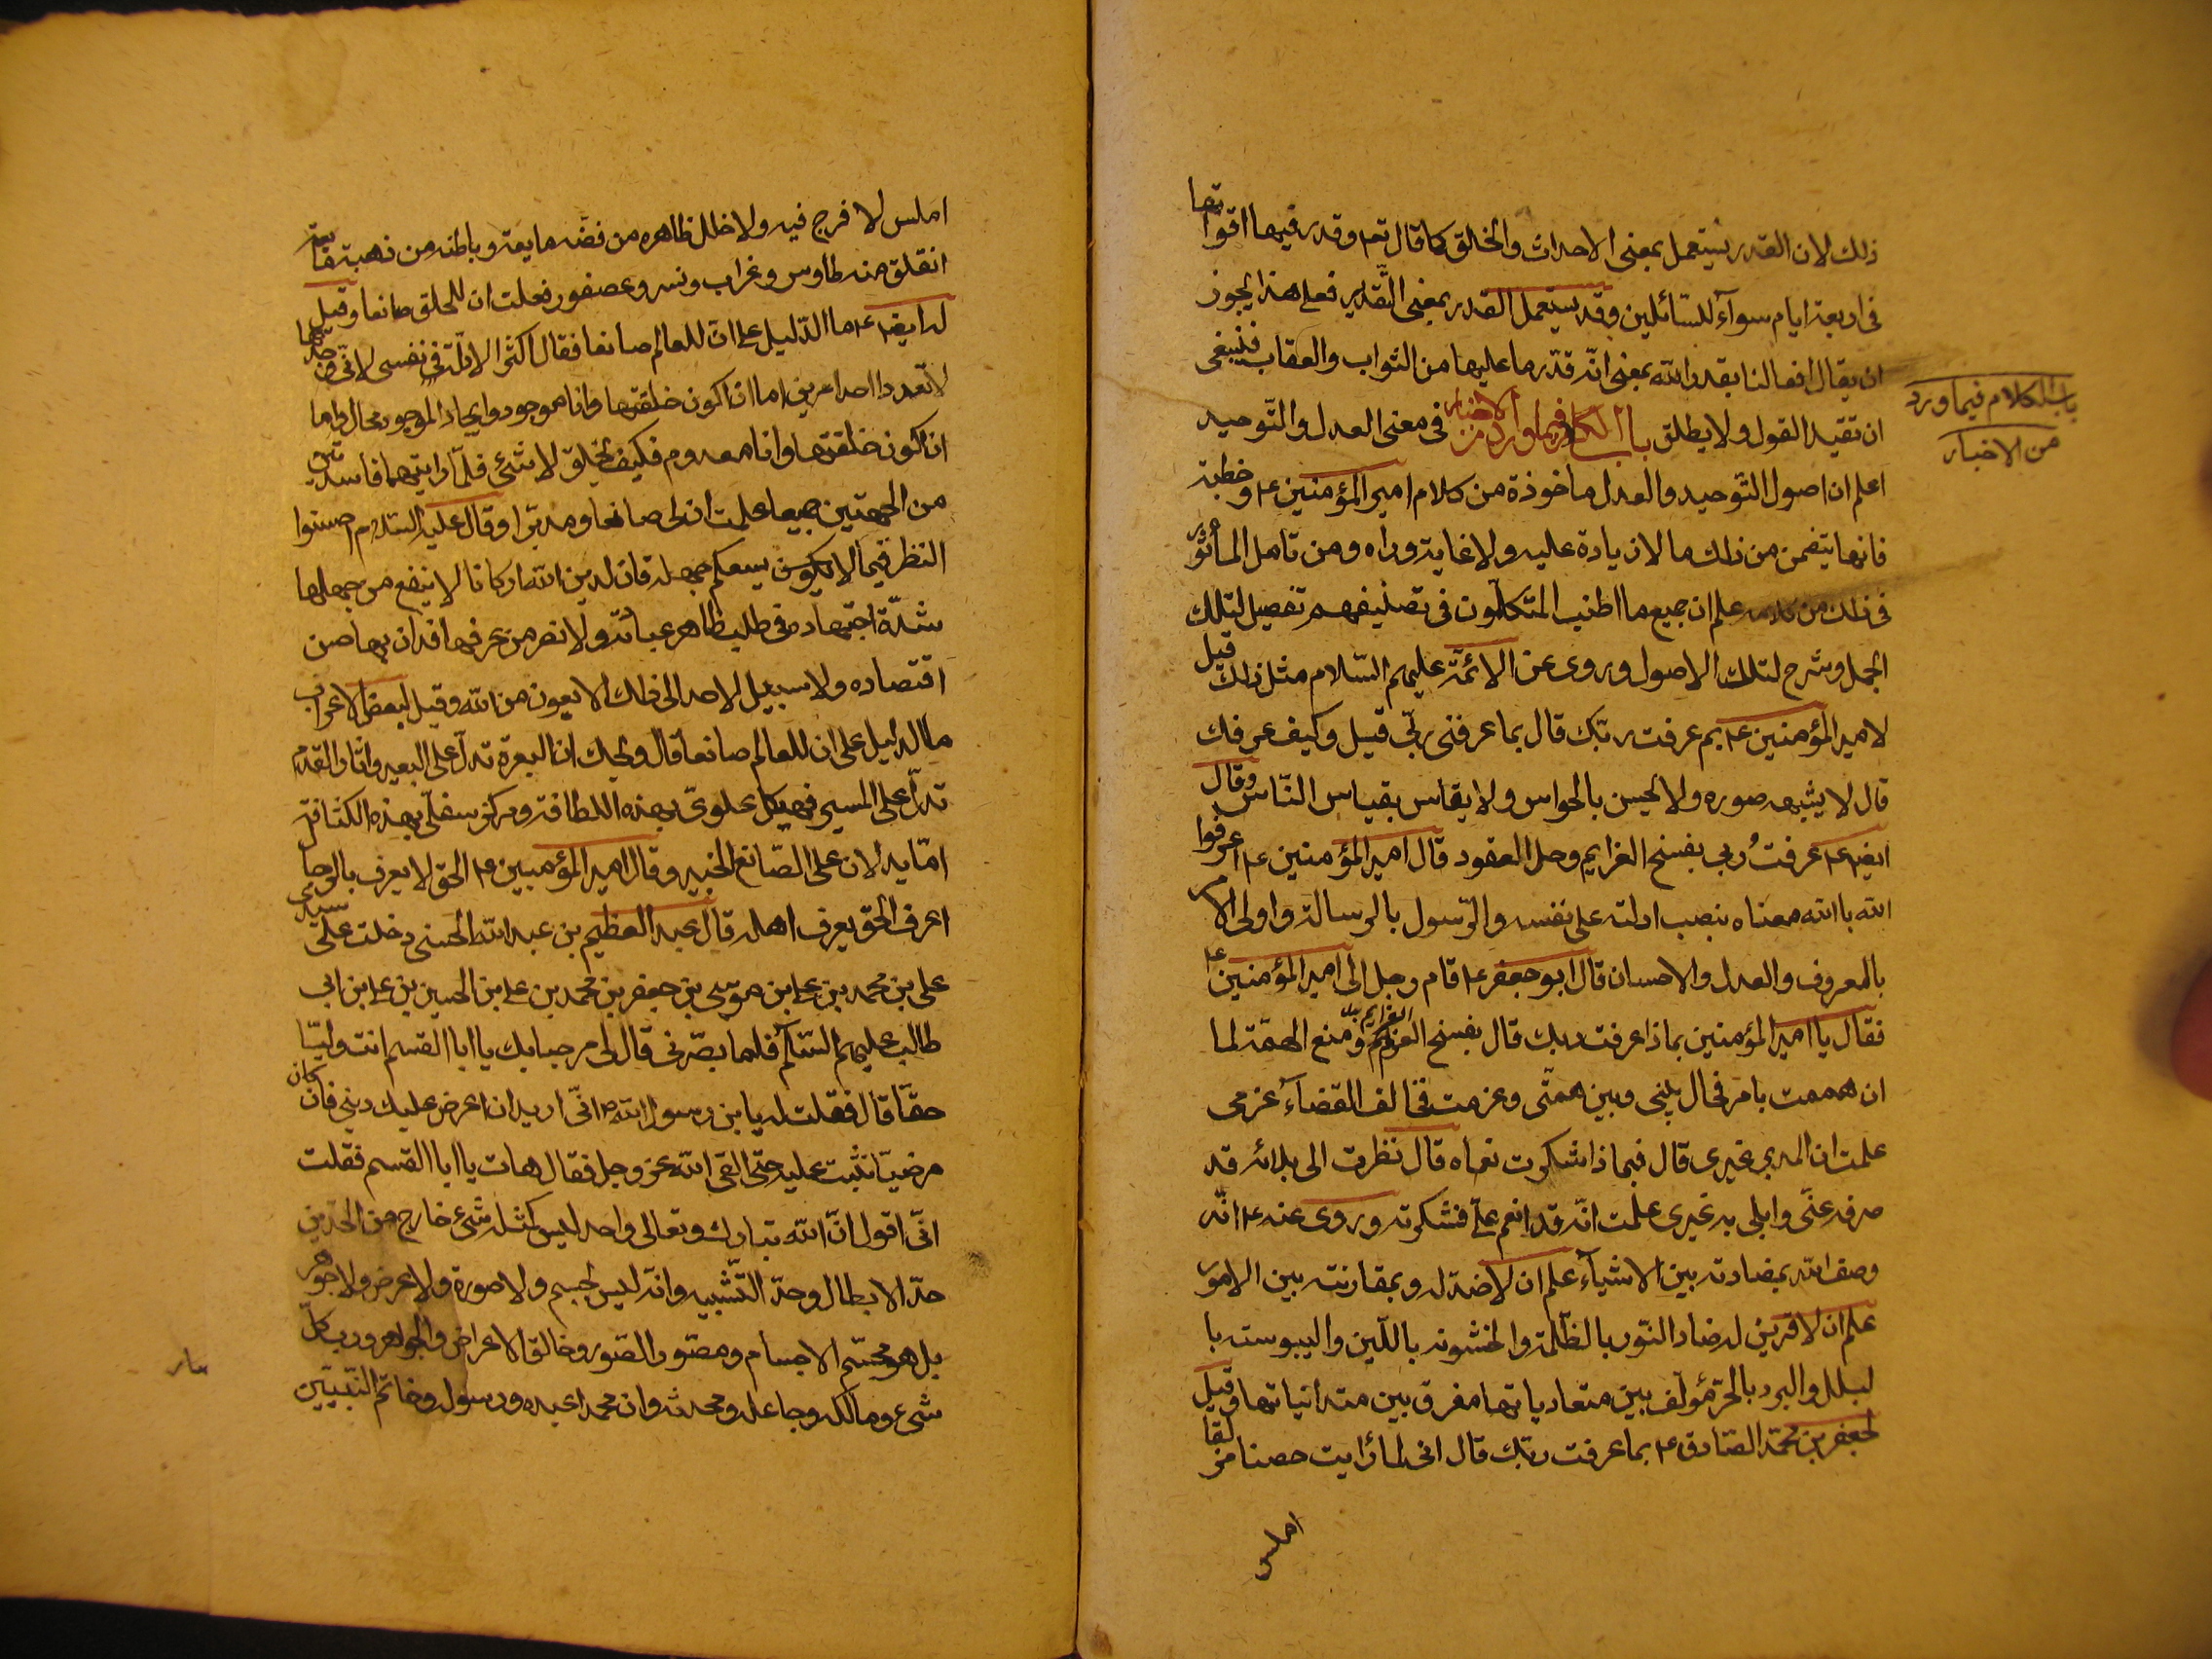 ذلك لان القدر يستعمل بمعنى الاحداث والخلق كما قال تع وقدر فيها اقواتها
فى اربعة ايام سوآء للسّائلين وقد يستعمل القدر بمعنى التّقدير فعلى هذا يجوز
ان يقال افعالنا بقدر الله بمعنى انّه قدّر ما عليها من الثواب والعقاب فينبغى
ان تقيد القول ولا يطلق باب الكلام فيما ورد من الاخبار فى معنى العدل والتّوحيد
باب الكلام فيما ورد
من الاخبار
اعلم ان اصول التّوحيد والعدل ماخوذة من كلام امير المؤمنين ع وخطبة
فانها يتضمن من ذلك ما لا زيادة عليه ولا غاية وراه ومن تامل المأثور
فى ذلك من كلامه علم ان جميع ما اطنب المتكلّمون فى تصنيفهم تفصيل لتلك
الجمل وشرح لتلك الاصول وروى عن الائمّة عليهم السّلام مثل ذلك قيل
لامير المؤمنين ع بم عرفت ربّك قال بما عرفنى ربّى قيل وكيف عرفك
قال لا يشبهه صوره ولا يحس بالحواس ولا يقاس بقياس النّاس وقال
ايض ع عرفتُ ربى بفسخ الغرايم وحل العقود قال امير المؤمنين ع اعرفوا
الله بالله معناه بنصب ادلته على نفسه والرّسول بالرسالة واولى الامر
بالمعروف والعدل والاحسان قال ابو جعفر ع قام رجل الى امير المؤمنين ع
فقال يا امير المؤمنين بماذا عرفت ربك قال بفسخ العزم ومنع الهمّة لما
ان هممت بامر فحال بينى وبين همتّى وعزمت فخالف القضآء عزمى
علمت ان المدبر غيرى قال فبماذا شكرت نعماه قال نظرت الى بلائه قد
صرفه عنّى وابلى به غيرى علمت انّه قد انعم علىّ فشكرته وروى عنه ع انّه
وصف الله بمضادته بين الاشيآء علم ان لا ضدّ له وبمقارنته بين الامور
علم ان لا قرين له ضاد النّور بالظّلمة والخشونه باللّين واليبوسته با
لبلل والبرد بالحرّ مؤلف بين متعادياتها مفرق بين متدانياتها وقيل
لجعفر بن محمّد الصّادق ع بما عرفت ربّك قال انى لما رايت حصنا مزلقا
املس
املس لا فرج فيه ولا خلل ظاهره من فضّه مايعة وباطنه من ذهبة مايعة
انفلق منه طاوس وغراب ونسر وعصفور فعلت ان للخلق صانعا وقيل
له ايض ع ما الدّليل على انّ للعالم صانعا فقال اكثر الادلّة فى نفسى لانّى وجدتها
لا تعدو احد امرين اما ان اكون خلقتها وانا موجود وايجاد الموجود محال واما
ان اكون خلقتها وانا معدوم فكيف يخلق لا شئ فلمّا رايتهما فاسدتين
من الجهتين جميعا علمت ان لى صانعا ومدبّرا وقال عليه السّلام احسنوا
النظر فيما لا يسعكم جهله فان لدين الله اركانا لا ينفع من جهلها
شدّة اجتهاده فى طلب ظاهر عبادته ولا نضر من عرفها فدان بها حسن
اقتصاده ولا سبيل لاحد الى ذلك الا بعون من الله وقيل لبعض الاعراب
ما الدليل على ان للعالم صانعا قال ويحك ان البعرة تدلّ على البعير واثار القدم
تدلّ على المسير فهيكل علوىّ بهذه اللطافة ومركز سفلّى بهذه الكثافة
امّا يدلان على الصّانع الخبير وقال امير المؤمنين ع الحق لا يعرف بالرجال
اعرف الحقّ يعرف اهله قال عبد العظيم بن عبد الله الحسنى دخلت على سيدى
على بن محمد بن على بن موسى بن جعفر بن محمد بن على بن الحسين بن على بن ابى
طالب عليهم السّلم فلما بصّرنى قال لى مرحبا بك يا ابا القسم انت وليّنا
حقّا قال فقلت له يا بن رسول الله انّى اريد ان اعرض عليك دينى فان كان
مرضيّا نثبت عليه حتى القى الله عز وجل فقال هات يا ابا القسم فقلت
انّى اقول انّ الله تبارك وتعالى واحد ليس كمثله شئ خارج من الحّدين
حدّ الابطال وحدّ التّشبيه وانّه ليس بجسم ولا صورة ولا عرض ولا جوهر
بل هو مجسّم الاجسام ومصّور الصّور وخالق الاعراض والجواهر وربّ كلّ
شئ ومالكه وجاعله ومحدثه وان محمدا عبده ورسوله وخاتم النّبيّين